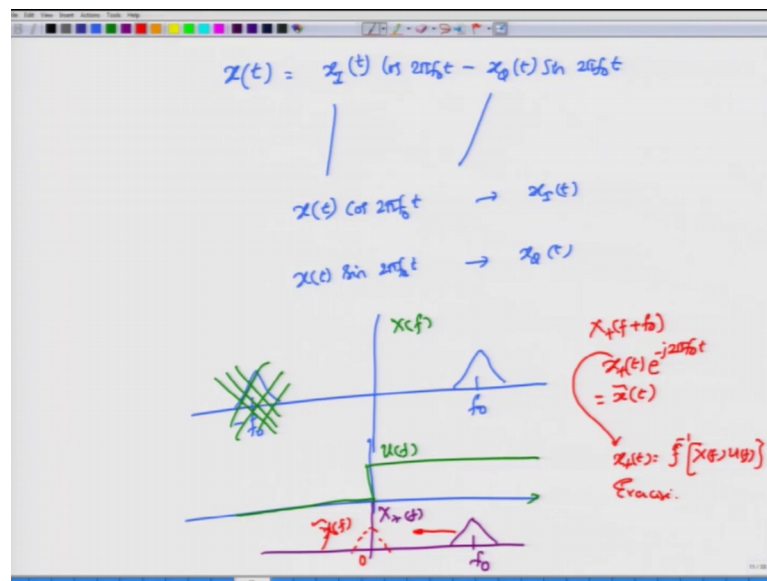 Edit View Insert Actions Tools Help
x(t) = x_I(t) cos 2πf₀t − x_Q(t) sin 2πf₀t
x(t) cos 2πf₀t → x_I(t)
x(t) sin 2πf₀t → x_Q(t)
X(f)
X₊(f+f₀)
x₊(t) e^{-j2πf₀t}
= x̃(t)
-f₀
f₀
U(f)
x₊(t) = F⁻¹{X(f) U(f)}
X₊(f)
X̃(f)
0
f₀